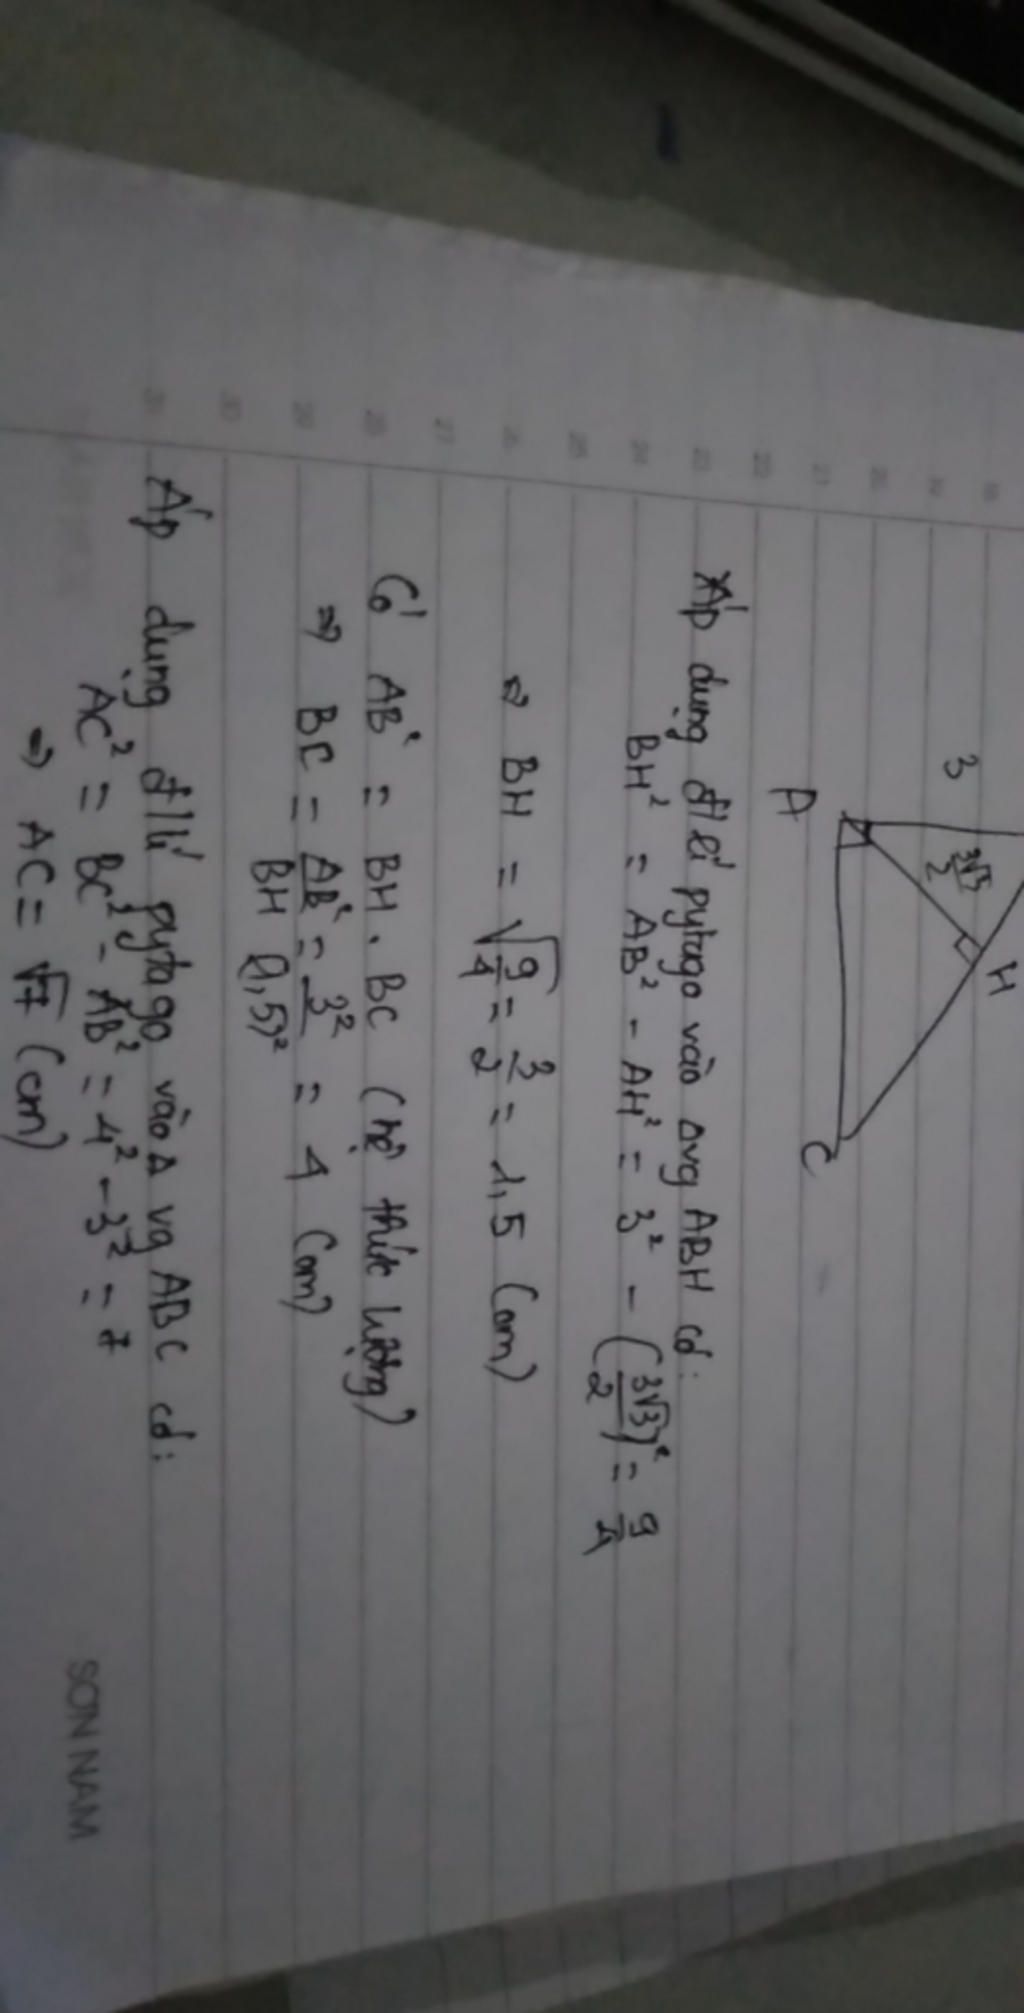 3
3√3/2
H
A
C
Áp dụng đ/lí pytago vào Δvg ABH có:
BH² = AB² - AH² = 3² - (3√3/2)² = 9/4
⇒ BH = √9/4 = 3/2 = 1,5 (cm)
Có AB² = BH . BC (hệ thức lượng)
⇒ BC = AB²/BH = 3²/(1,5)² = 4 (cm)
Áp dụng đ/lí pytago vào Δ vg ABC có:
AC² = BC² - AB² = 4² - 3² = 7
⇒ AC = √7 (cm)
SƠN NAM